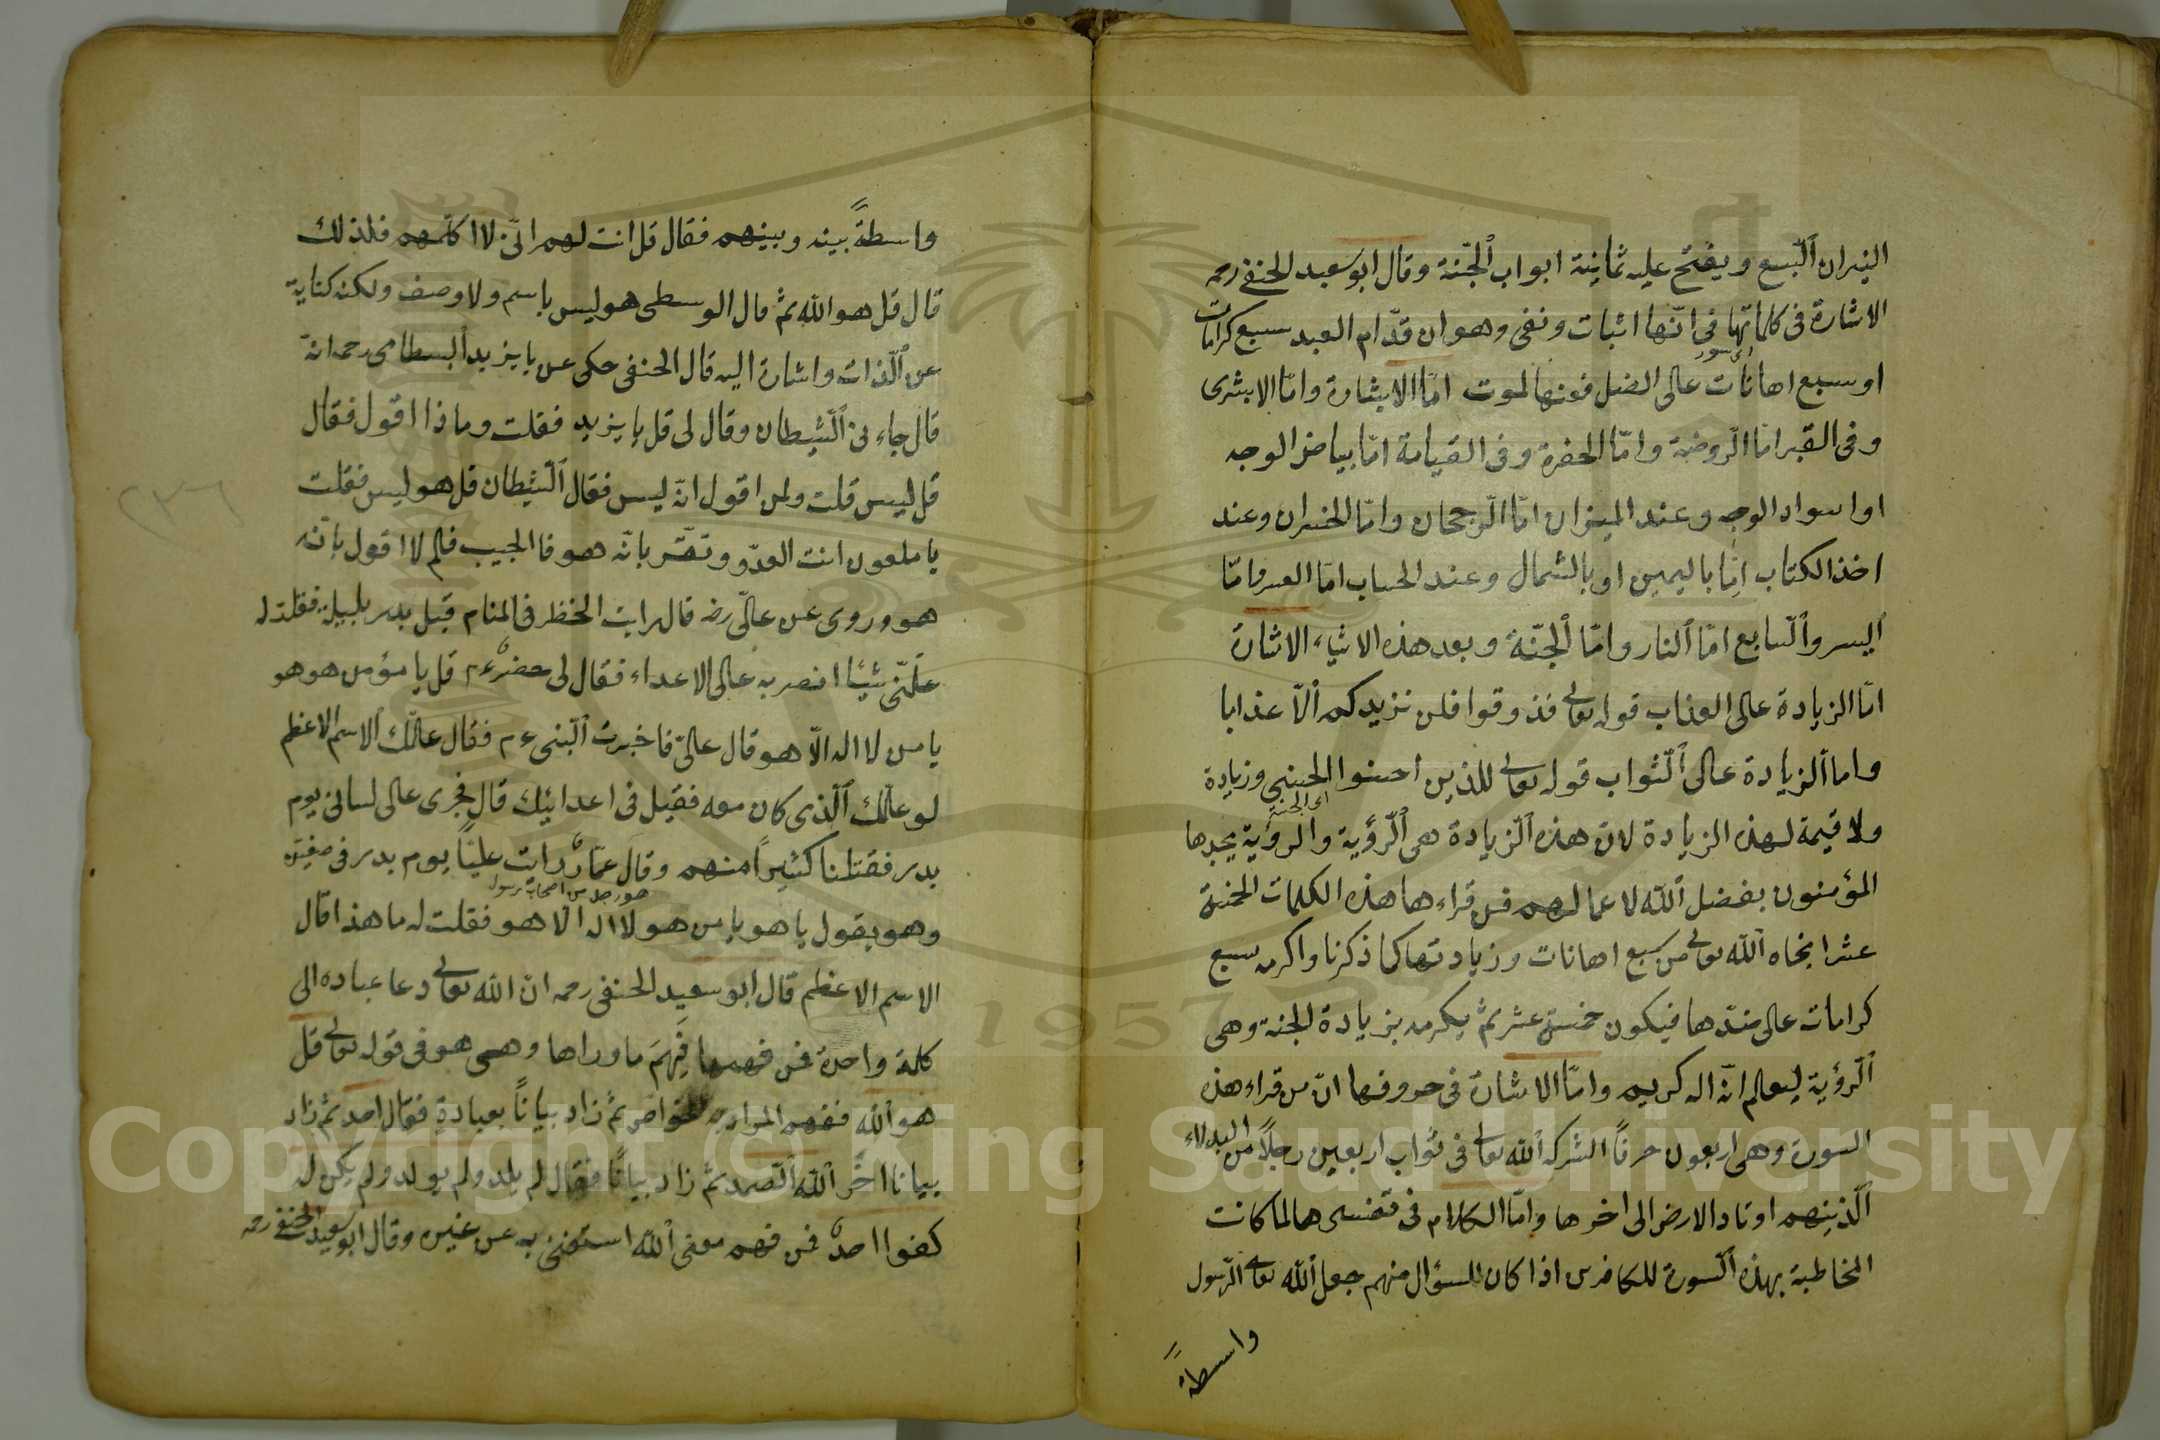 النيران السبع ويفتح عليه ثمانية ابواب الجنة وقال ابو سعيد الحنفى رحمه
الاشارة فى كلماتها فى انّها اثبات ونفى وهو ان قدّام العبد سبع كرامات
او سبع اهانات على الضد فعند الموت امّا الابشارة وامّا الابشرى
وفى القبر امّا الرّوضة وامّا الحفرة وفى القيامة امّا بياض الوجه
اوا سواد الوجه وعند الميزان امّا الرّجحان وامّا الخسران وعند
اخذ الكتاب امّا باليمين او بالشمال وعند الحساب امّا العسر وامّا
اليسر والسّابع امّا النار وامّا الجنّة وبعد هذه الاشياء الاشارة
امّا الزيادة على العذاب قوله تعالى فذوقوا فلن نزيدكم الّا عذابا
واما الزيادة على الثّواب قوله تعالى للذين احسنوا الحسنى وزيادة
اى الجنة
ولا قيمة لهذه الزيادة لانّ هذه الزّيادة هى الرّؤية والرؤية يجدها
المؤمنون بفضل الله لا عمالهم فمن قراءها هذه الكلمات الخمسة
عشر انجاه الله تعالى من سبع اهانات وزيادتها كما ذكرنا واكرمه سبع
كرامات على ضدّها فيكون خمسة عشر ثمّ يكرمه بزيادة الجنة وهى
الرّؤية ليعلم انّه اله كريم وامّا الاشارة فى حروفها انّ من قراء هذه
السورة وهى اربعون حرفًا اشركه الله تعالى فى ثواب اربعين رجلًا من البدلاء
الّذينهم اوتاد الارض الى اخرها وامّا الكلام فى تفسيرها لما كانت
المخاطبة بهذه السّورة للكافرين اذا كان السؤال منهم جعل الله تعالى الرّسول
واسطةً
واسطةً بينه وبينهم فقال قل انت لهم انّى لا اكلّمهم فلذلك
قال قل هو الله ثمّ قال الوسطى هو ليس باسم ولا وصف ولكنه كناية
عن الّذات واشارة اليه قال الحنفى حكى عن بايزيد البسطامى رحمه انّه
قال جاء نى الشّيطان وقال لى قل بايزيد فقلت وماذا اقول فقال
قل ليس قلت ولمن اقول انّه ليس فقال الشّيطان قل هو ليس فقلت
يا ملعون انت العدّو وتقرّ بانّه هو فا الحبيب فلم لا اقول بانّه
هو وروى عن علىّ رضه قال رايت الخظر فى المنام قبل بدر بليلة فقلت له
علّمنى شيئا انصر به على الاعداء فقال لى حضر عم قل يا مؤمن هو هو
يا من لا اله الّا هو قال علىّ فاخبرت النّبى عم فقال علّمك الاسم الاعظم
لو علّمك الّذى كان معه فقيل فى اعدائيك قال فجرى على لسانى يوم
بدر فقتلنا كثيرًا منهم وقال عمّار رايت عليًّا يوم بدر فى صفّين
هو رجل من اصحاب رسول
وهو يقول يا هو يا من هو لا اله الا هو فقلت له ما هذا قال
الاسم الاعظم قال ابو سعيد الحنفى رحمه انّ الله تعالى دعا عباده الى
كلمة واحدة فمن فهمها فَهِمَ ما وراها وهى هو فى قوله تعالى قل
هو الله ففهم المراد به الخواص ثمّ زاد بيانًا بعبادةٍ فقال احد ثمّ زاد
بيانا اخر الله الصّمد ثمّ زاد بيانًا فقال لم يلد ولم يولد ولم يكن له
كفوا احدٌ فمن فهم معنى الله استغنى به عن غيره وقال ابو سعيد الحنفى رحمه
٢٣٦
1957
Copyright © King Saud University